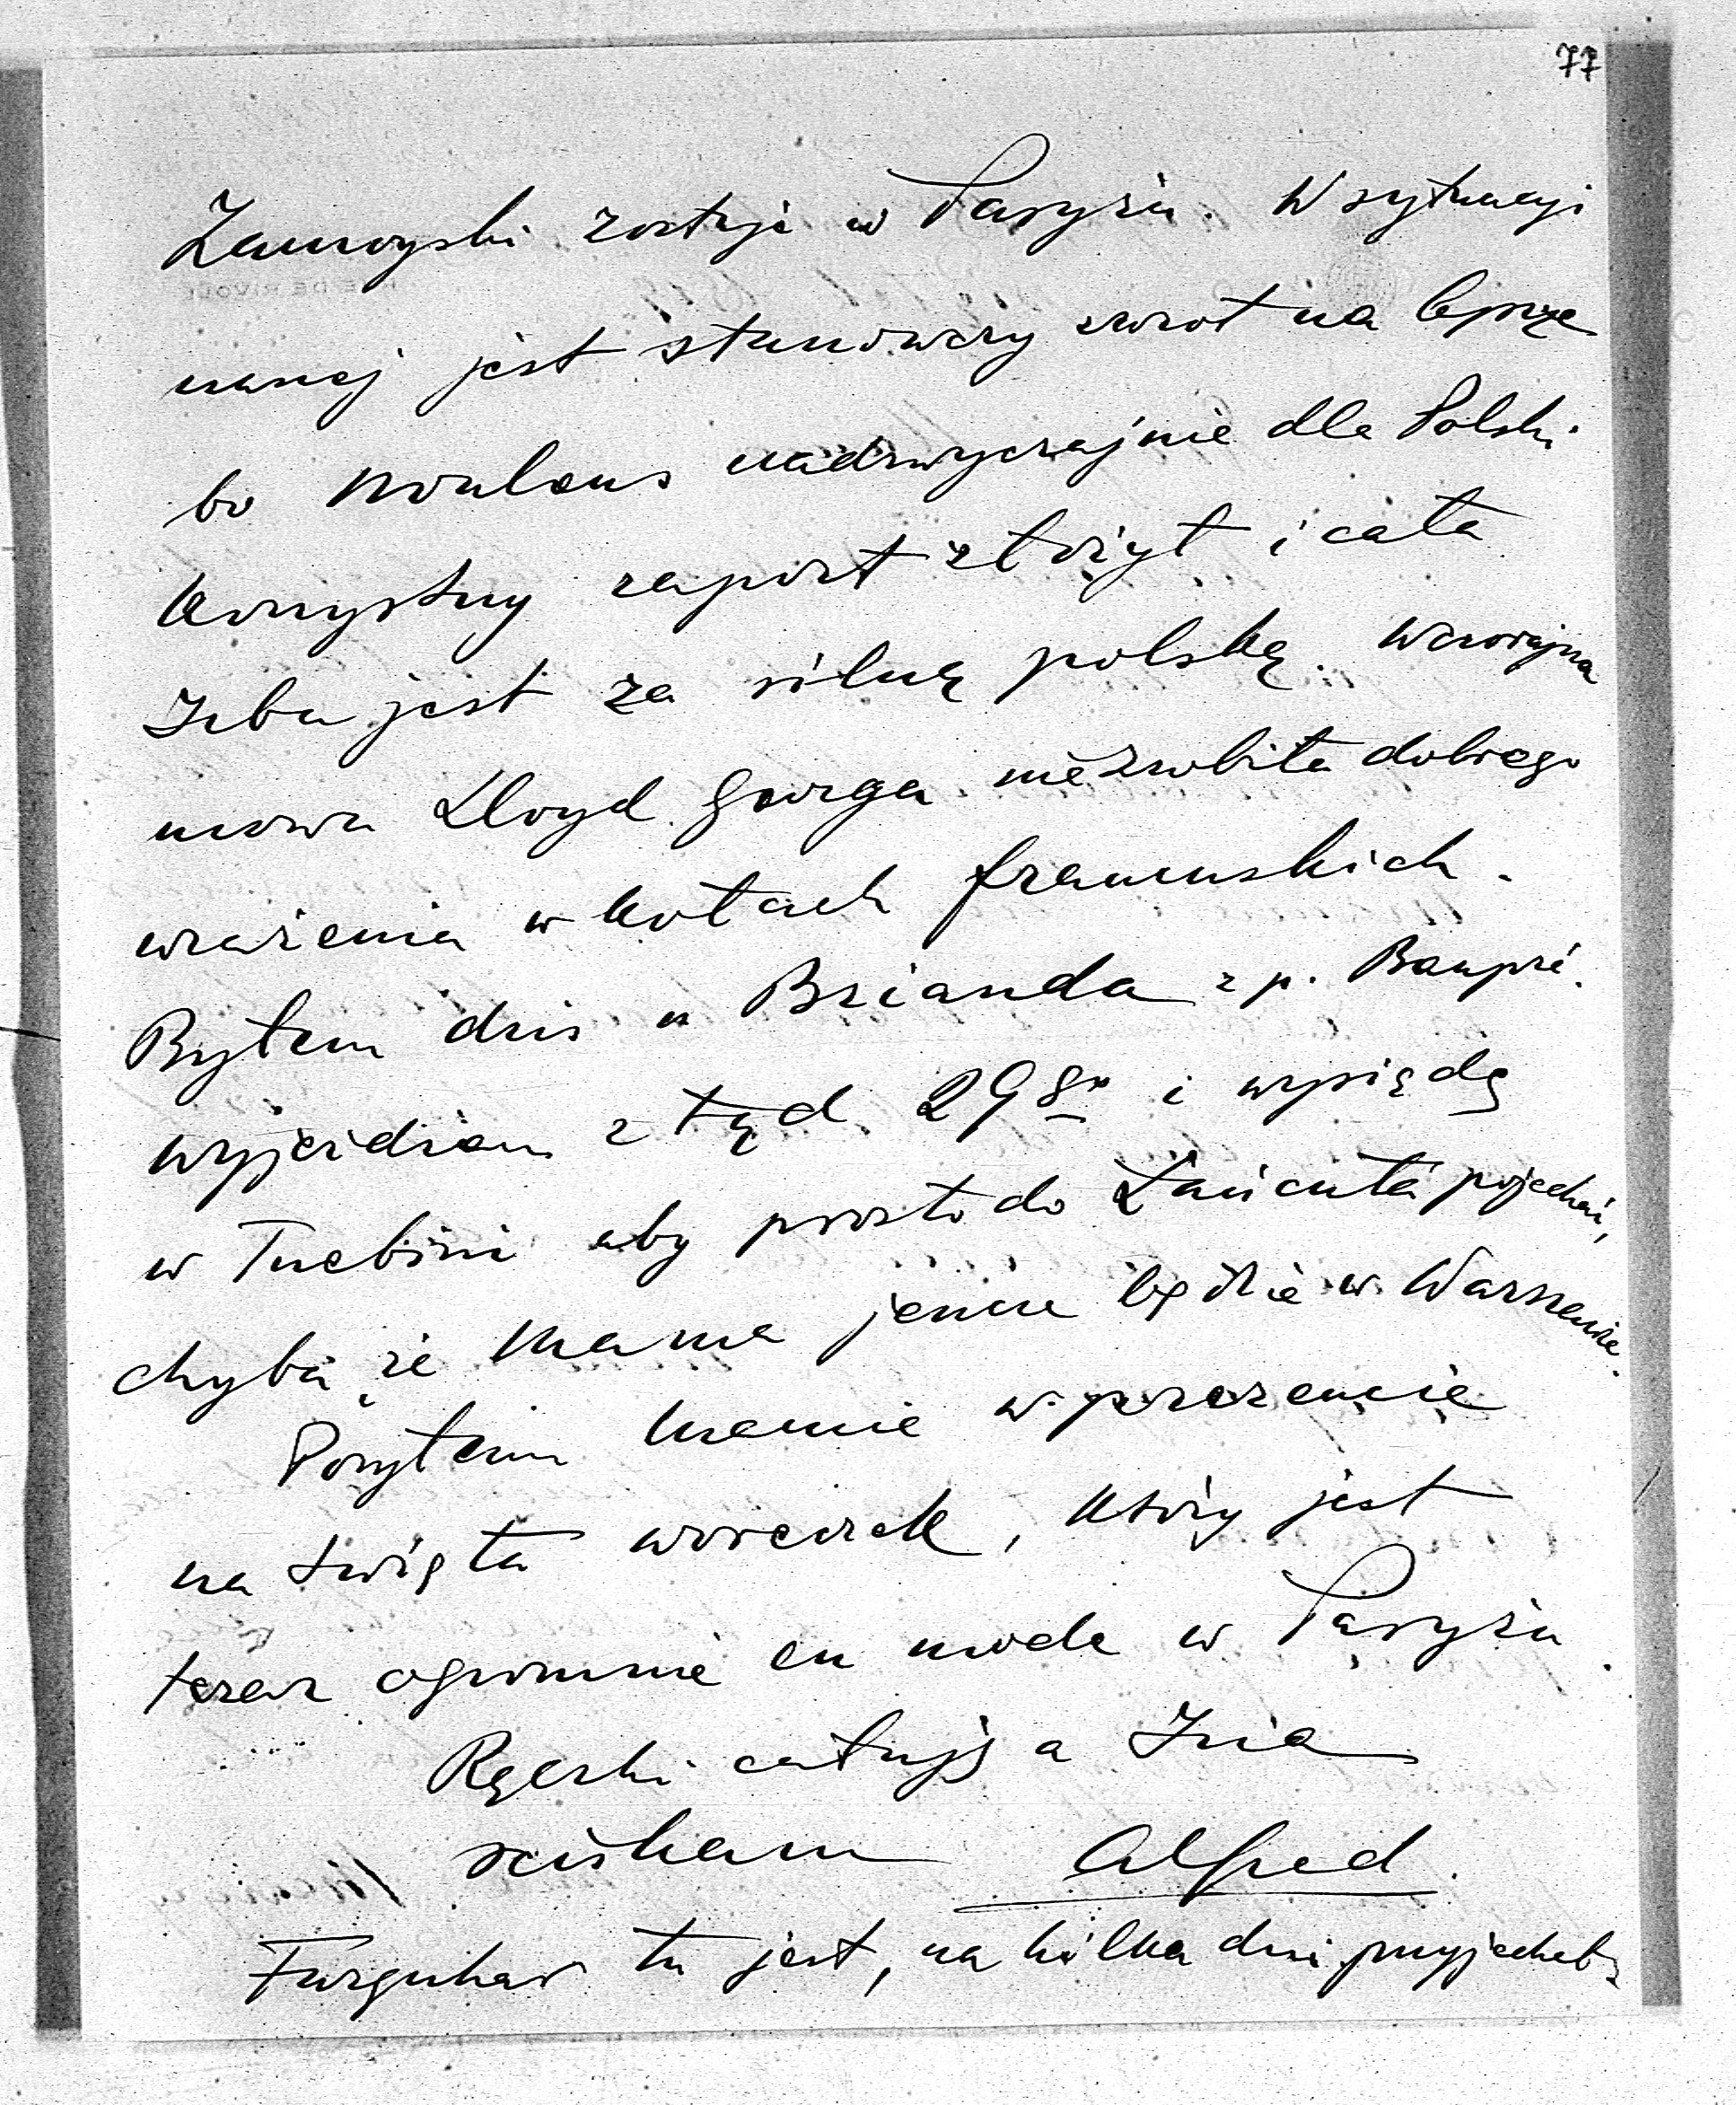 77
Zamoyski zostaje w Paryżu. W sytuacji
naszej jest stanowczy zwrot na lepsze
bo Noulens nadzwyczajnie dla Polski
korzystny raport złożył i cała
Izba jest za silną polską. Wczorajsza
mowa Lloyd Georga nie zrobiła dobrego
wrażenia w kołach francuskich.
Byłem dziś u Brianda z p. Baupré.
wyjeżdżam z tąd 29go i wysiądę
w Trzebini aby prosto do Łańcuta pojechać,
chyba że Mama jeszcze będzie w Warszawie.
Posyłam Mamie w prezencie
na święta woreczek, który jest
teraz ogromnie en mode w Paryżu.
Rączki całuję a Izia
ściskam Alfred.
tu jest, na kilka dni przyjechał